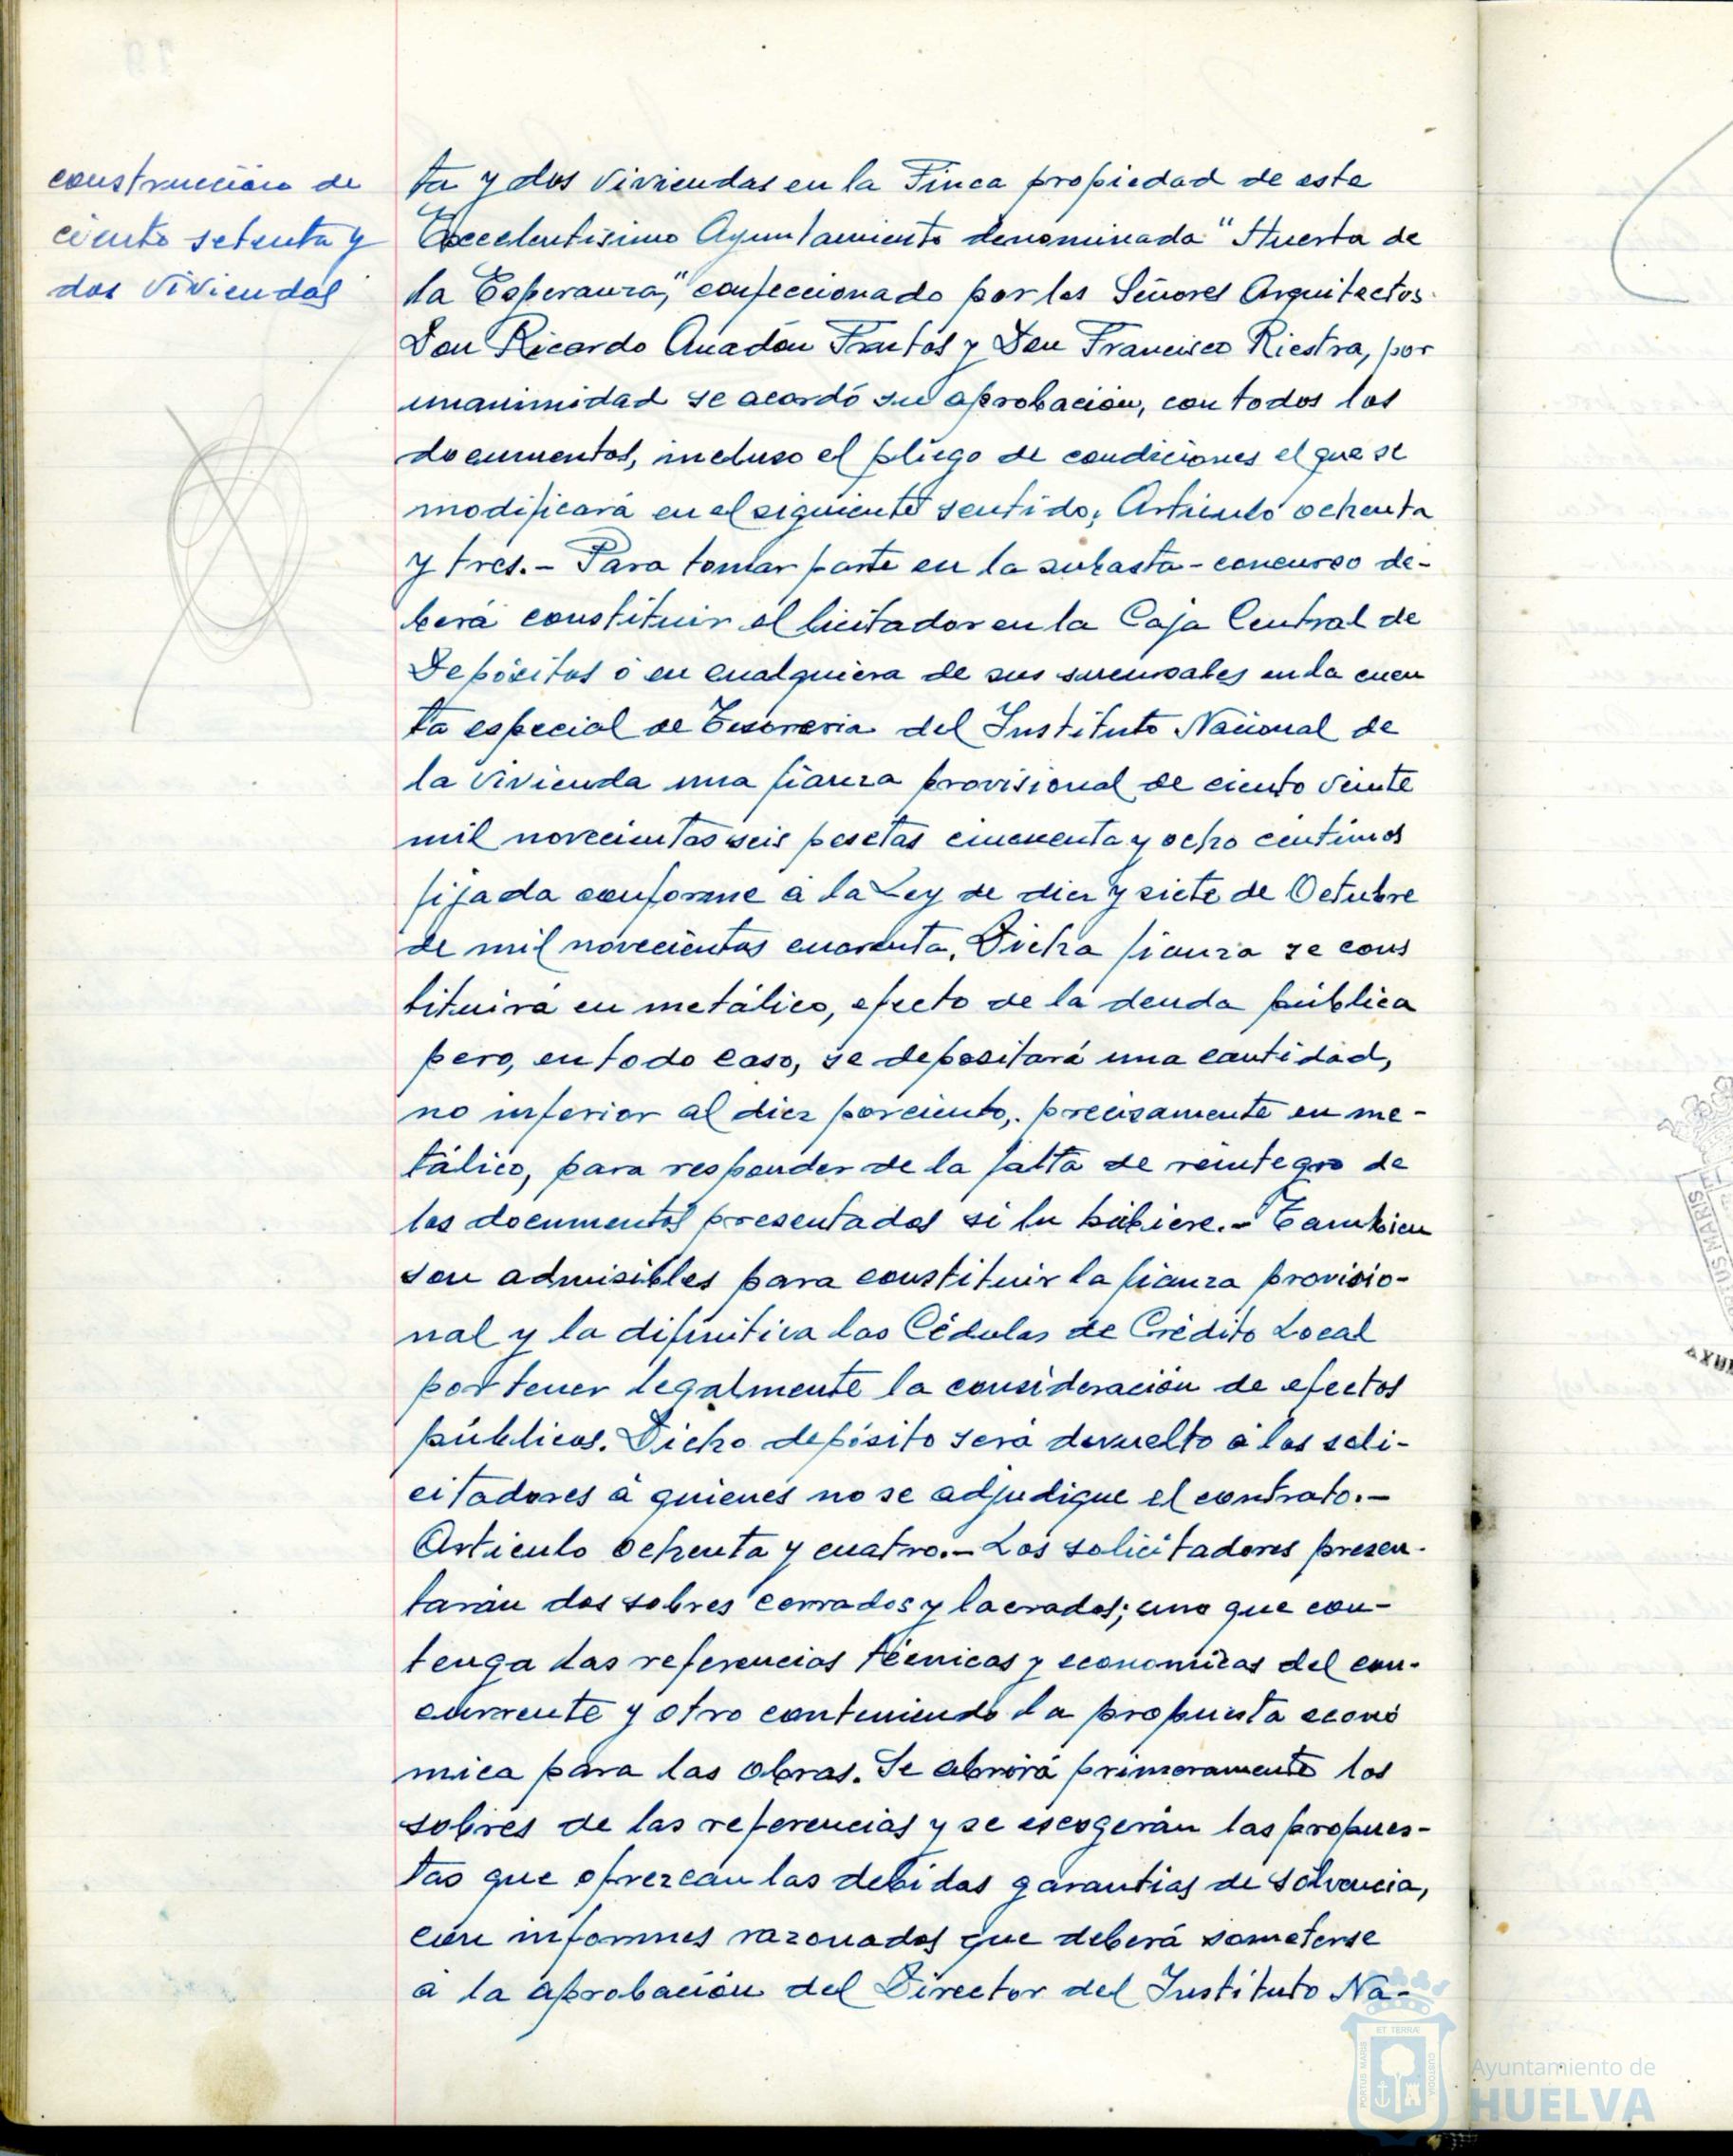 construcción de
ciento setenta y
dos viviendas
ta y dos viviendas en la Finca propiedad de este
Excelentisimo Ayuntamiento denominada "Huerta de
la Esperanza," confeccionado por los Señores Arquitectos
Don Ricardo Anadón Frutos y Don Francisco Riestra, por
unanimidad se acordó su aprobación, con todos los
documentos, incluso el pliego de condiciones el que se
modificará en el siguiente sentido: Articulo ochenta
y tres.- Para tomar parte en la subasta-concurso de-
berá constituir el licitador en la Caja Central de
Depósitos ó en cualquiera de sus sucursales en la cuen
ta especial de Tesoreria del Instituto Nacional de
la Vivienda una fianza provisional de ciento veinte
mil novecientas seis pesetas cincuenta y ocho centimos
fijada conforme á la Ley de diez y siete de Octubre
de mil novecientos cuarenta. Dicha fianza se cons
tituirá en metálico, efecto de la deuda pública
pero, en todo caso, se depositará una cantidad,
no inferior al diez por ciento, precisamente en me-
tálico, para responder de la falta de reintegro de
los documentos presentados si lu hubiere.- Tambien
son admisibles para constituir la fianza provisio-
nal y la difinitiva las Cédulas de Crédito Local
por tener legalmente la consideración de efectos
públicos. Dicho depósito será devuelto á los soli-
citadores á quienes no se adjudique el contrato.-
Articulo ochenta y cuatro.- Los solicitadores presen-
tarán dos sobres cerrados y lacrados; uno que con-
tenga las referencias técnicas y economicas del con-
currente y otro conteniendo la propuesta econó
mica para las obras. Se abrirá primeramente los
sobres de las referencias y se escogerán las propues-
tas que ofrezcan las debidas garantias de solvencia,
con informes razonados que deberá someterse
á la aprobación del Director del Instituto Na-
ET TERRÆ
PORTUS MARIS
CUSTODIA
Ayuntamiento de
HUELVA